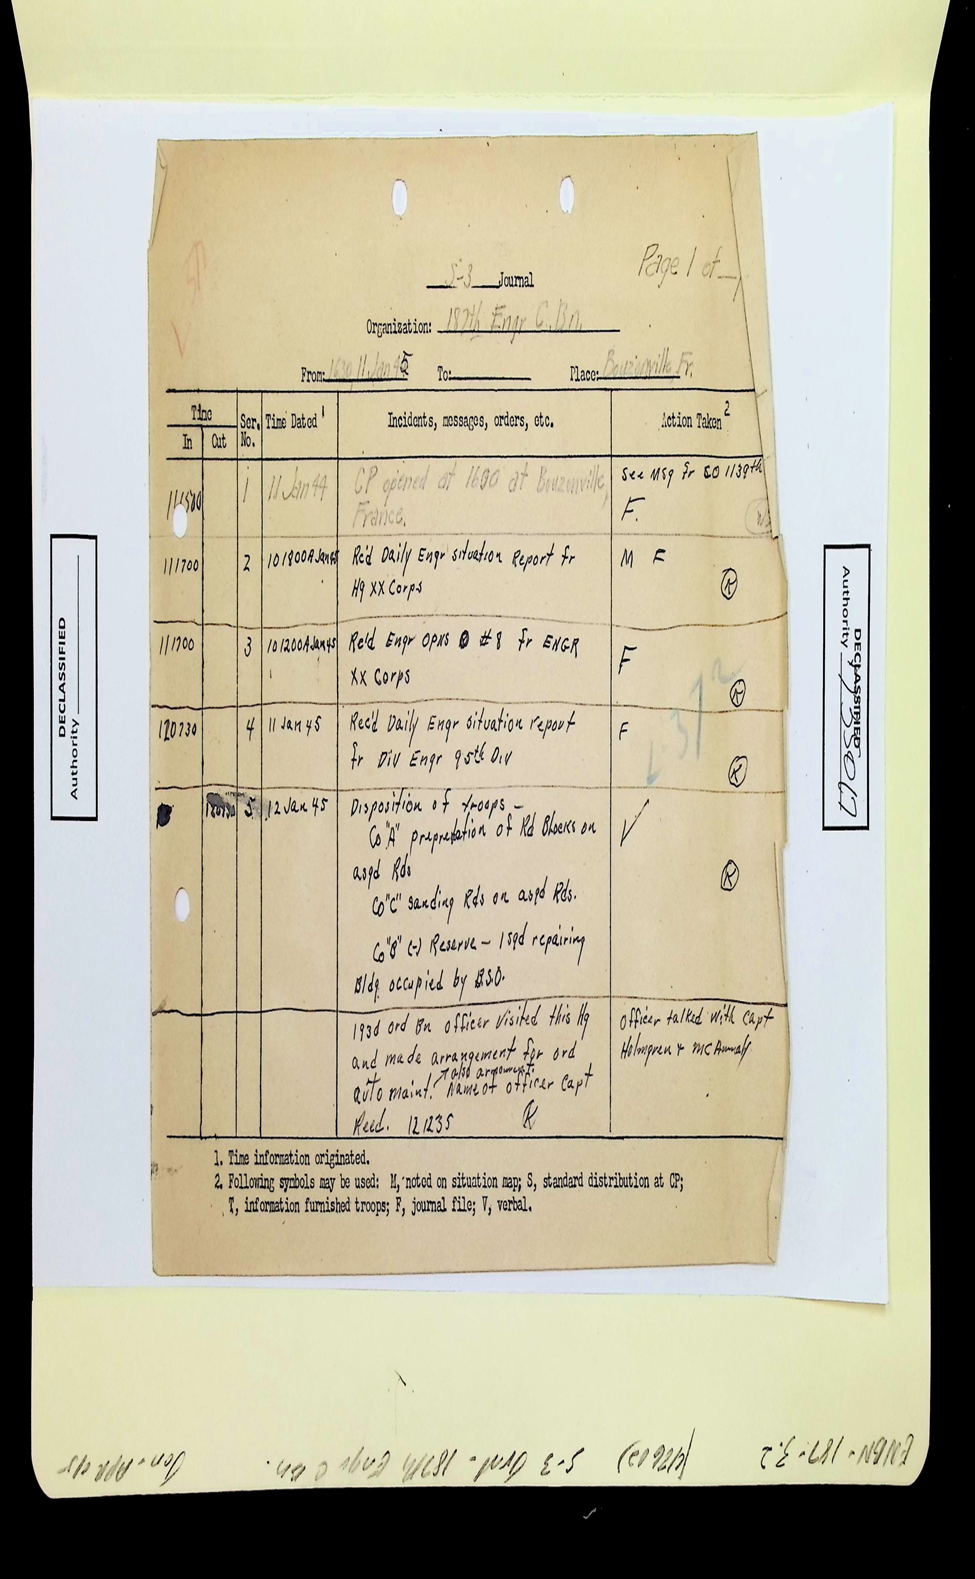 Page 1 of
S-3 Journal
Organization: 187th Engr C. Bn.
From: 1630 11 Jan 45 To: Place: Bouzonville, Fr.
Time Ser. No. Time Dated 1 Incidents, messages, orders, etc. Action Taken 2
In Out
1 11 Jan 44 CP opened at 1630 at Bouzonville, See Msg fr CO 1139th
France. F.
111700 2 101800A Jan 45 Rec'd Daily Engr situation Report fr M F
Hq XX Corps K
111700 3 101200A Jan 45 Rec'd Engr Opns O #8 fr ENGR F
XX Corps K
120730 4 11 Jan 45 Rec'd Daily Engr situation report F
fr Div Engr 95th Div K
5 12 Jan 45 Disposition of troops - V
Co "A" prepretation of Rd Blocks on
asgd Rds K
Co "C" sanding Rds on asgd Rds.
Co "B" (-) Reserve - 1 sqd repairing
Bldg occupied by B.S.O.
193d ord Bn officer visited this Hq Officer talked with Capt
and made arrangement for ord Holmgren &
also armament.
auto maint. Name of officer Capt
Reed. 121235 K
1. Time information originated.
2. Following symbols may be used: M, noted on situation map; S, standard distribution at CP;
T, information furnished troops; F, journal file; V, verbal.
DECLASSIFIED
Authority
DECLASSIFIED
Authority 735017
ENBN-187-3.2 (47602) S-3 Jrnl - 187th Engr C Bn. Jan-Apr 45